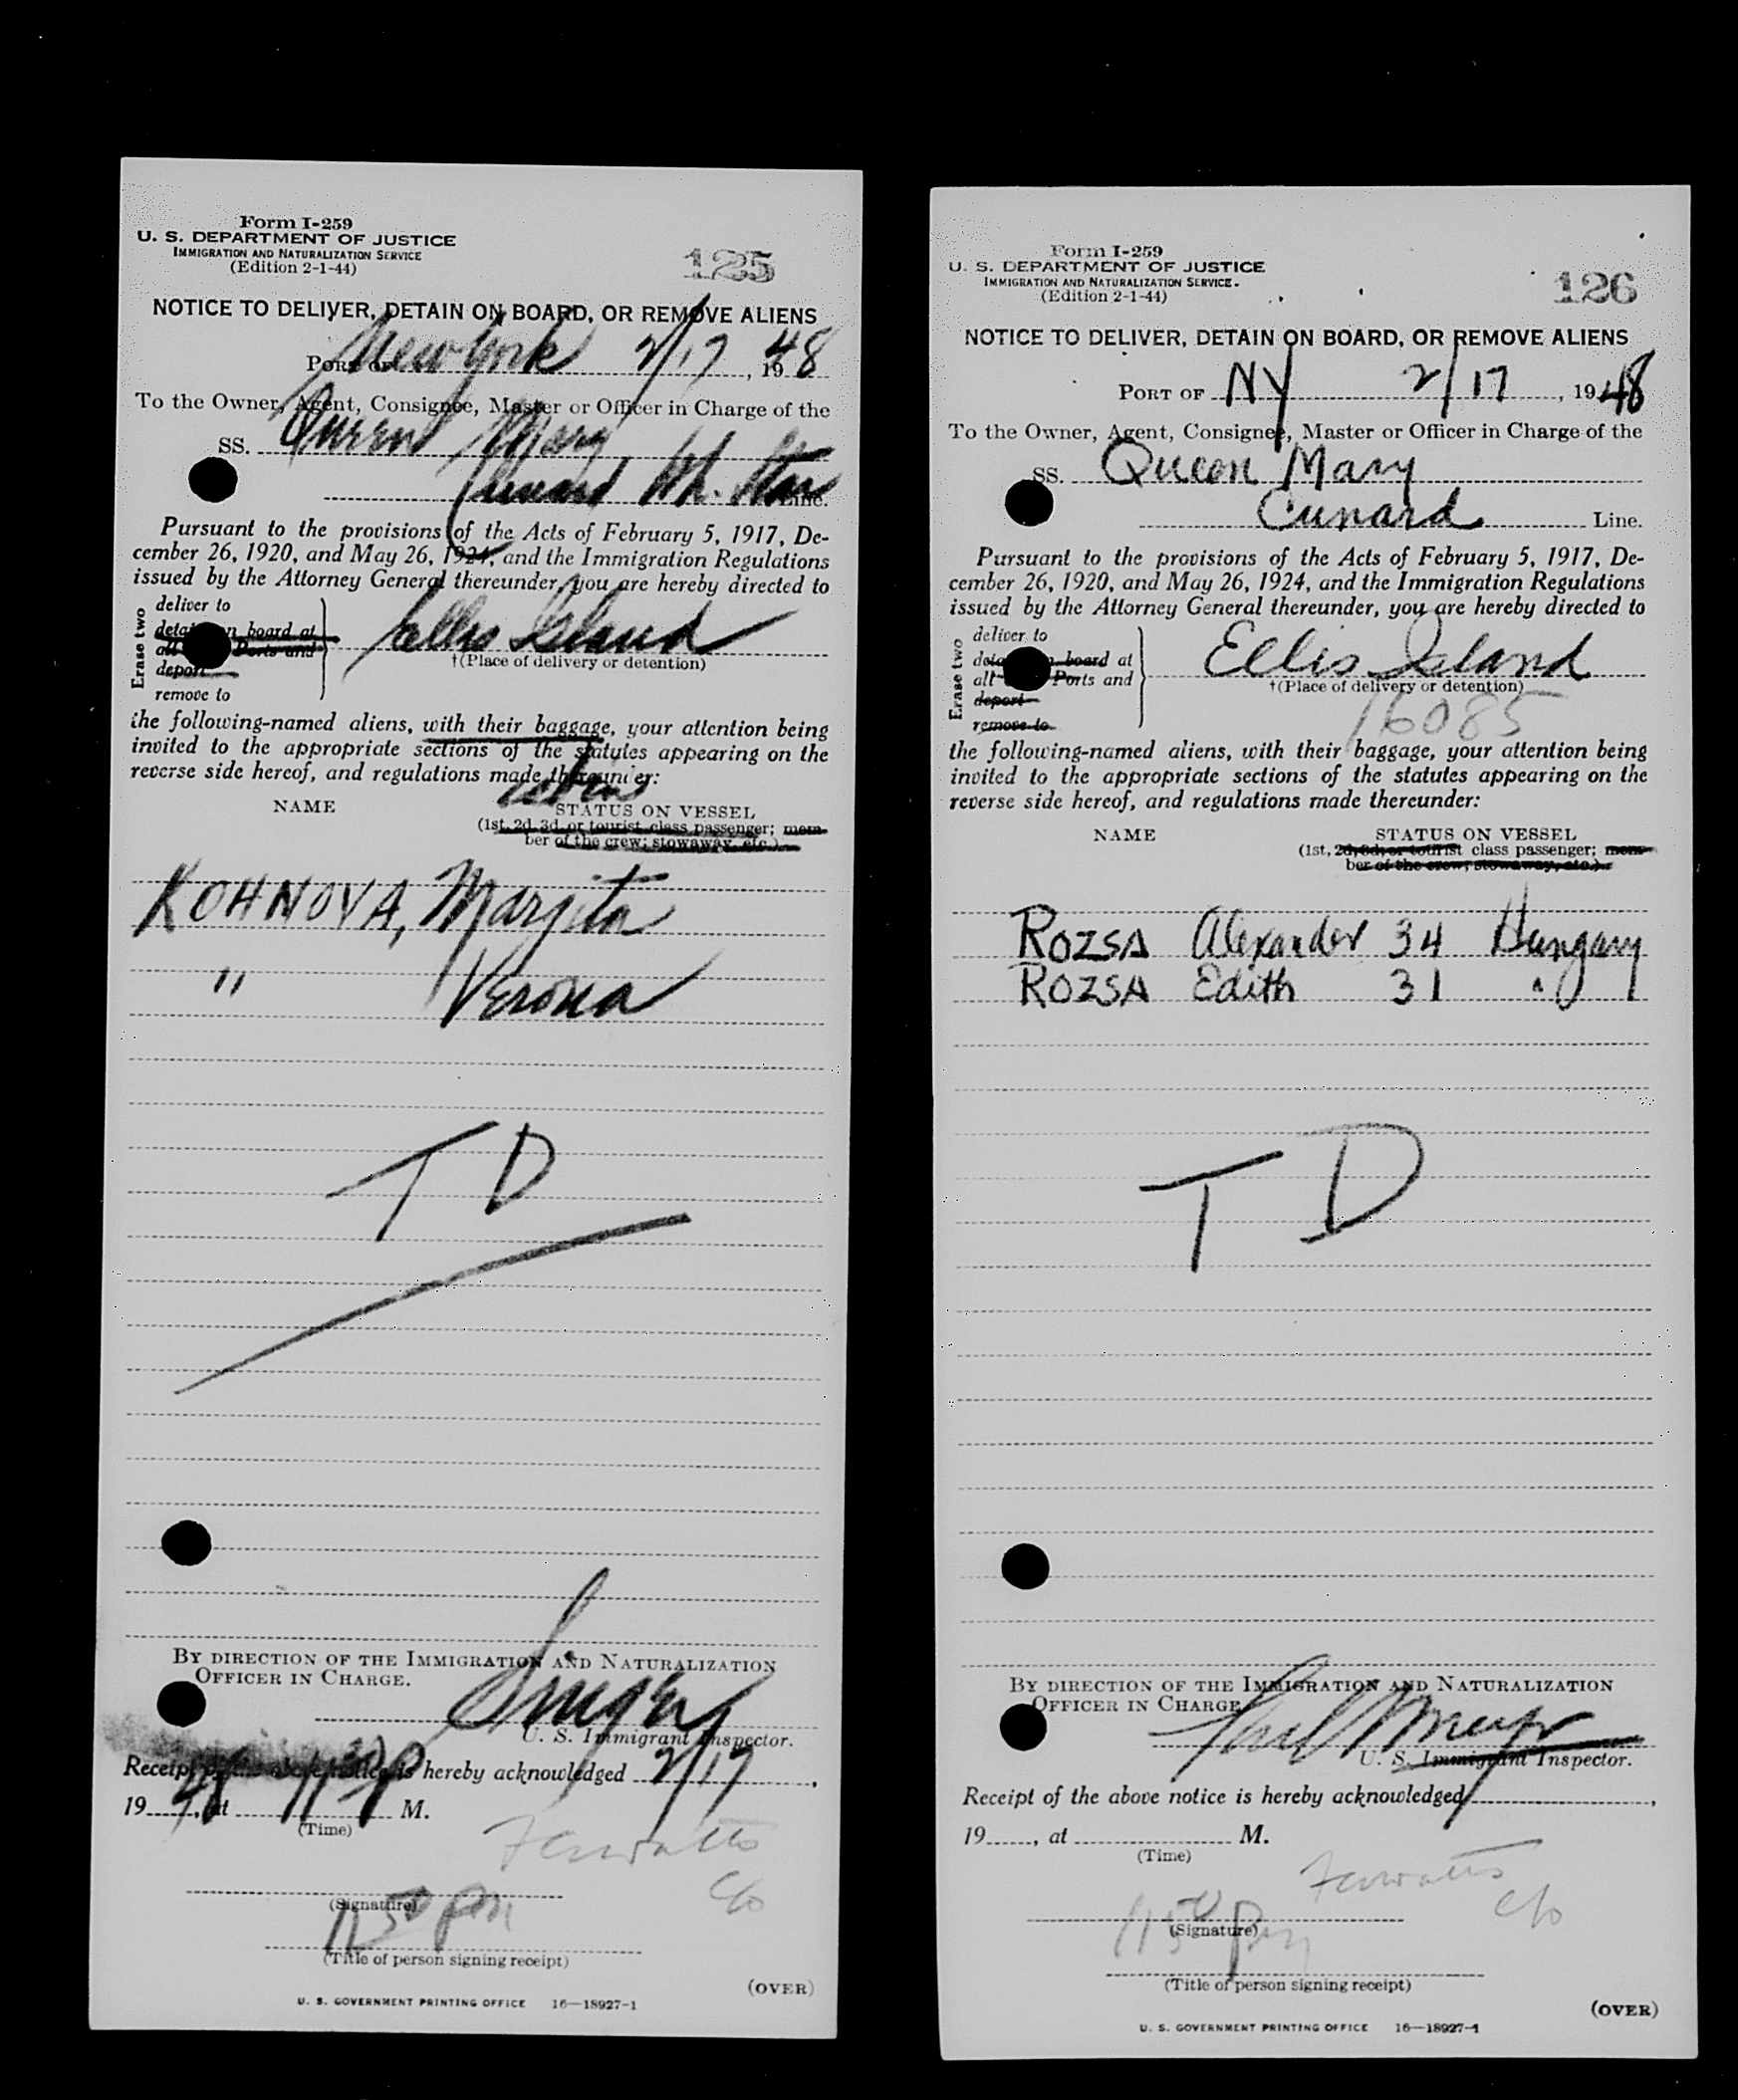 Form I-259
U. S. DEPARTMENT OF JUSTICE
IMMIGRATION AND NATURALIZATION SERVICE
(Edition 2-1-44)
125
NOTICE TO DELIVER, DETAIN ON BOARD, OR REMOVE ALIENS
PORT OF New York 2/17, 1948
To the Owner, Agent, Consignee, Master or Officer in Charge of the
SS. Queen Mary
Cunard Wh. Star Line.
Pursuant to the provisions of the Acts of February 5, 1917, De-
cember 26, 1920, and May 26, 1924, and the Immigration Regulations
issued by the Attorney General thereunder, you are hereby directed to
Erase two
deliver to
detain on board at
all Ports and
deport
remove to
Ellis Island
†(Place of delivery or detention)
the following-named aliens, with their baggage, your attention being
invited to the appropriate sections of the statutes appearing on the
reverse side hereof, and regulations made thereunder:
cabin
NAME STATUS ON VESSEL
(1st, 2d, 3d, or tourist class passenger; mem-
ber of the crew; stowaway, etc.)
KOHNOVA, Margita
" Verona
T D
BY DIRECTION OF THE IMMIGRATION AND NATURALIZATION
OFFICER IN CHARGE.
U. S. Immigrant Inspector.
Receipt of the above notice is hereby acknowledged 2/17,
1948, at 11 50 P M.
(Time)
c/o
(Signature)
11 50 pm
(Title of person signing receipt)
(OVER)
U. S. GOVERNMENT PRINTING OFFICE 16—18927-1
Form I-259
U. S. DEPARTMENT OF JUSTICE
IMMIGRATION AND NATURALIZATION SERVICE.
(Edition 2-1-44)
126
NOTICE TO DELIVER, DETAIN ON BOARD, OR REMOVE ALIENS
PORT OF NY 2/17, 1948
To the Owner, Agent, Consignee, Master or Officer in Charge of the
SS. Queen Mary
Cunard Line.
Pursuant to the provisions of the Acts of February 5, 1917, De-
cember 26, 1920, and May 26, 1924, and the Immigration Regulations
issued by the Attorney General thereunder, you are hereby directed to
Erase two
deliver to
detain on board at
all Ports and
deport
remove to
Ellis Island
†(Place of delivery or detention)
16085
the following-named aliens, with their baggage, your attention being
invited to the appropriate sections of the statutes appearing on the
reverse side hereof, and regulations made thereunder:
NAME STATUS ON VESSEL
(1st, 2d, 3d, or tourist class passenger; mem-
ber of the crew; stowaway, etc.)
ROZSA Alexander 34 Hungary
ROZSA Edith 31 "
T D
BY DIRECTION OF THE IMMIGRATION AND NATURALIZATION
OFFICER IN CHARGE
U. S. Immigrant Inspector.
Receipt of the above notice is hereby acknowledged ,
19 , at M.
(Time)
c/o
11 50 pm
(Signature)
(Title of person signing receipt)
(OVER)
U. S. GOVERNMENT PRINTING OFFICE 16—18927-1